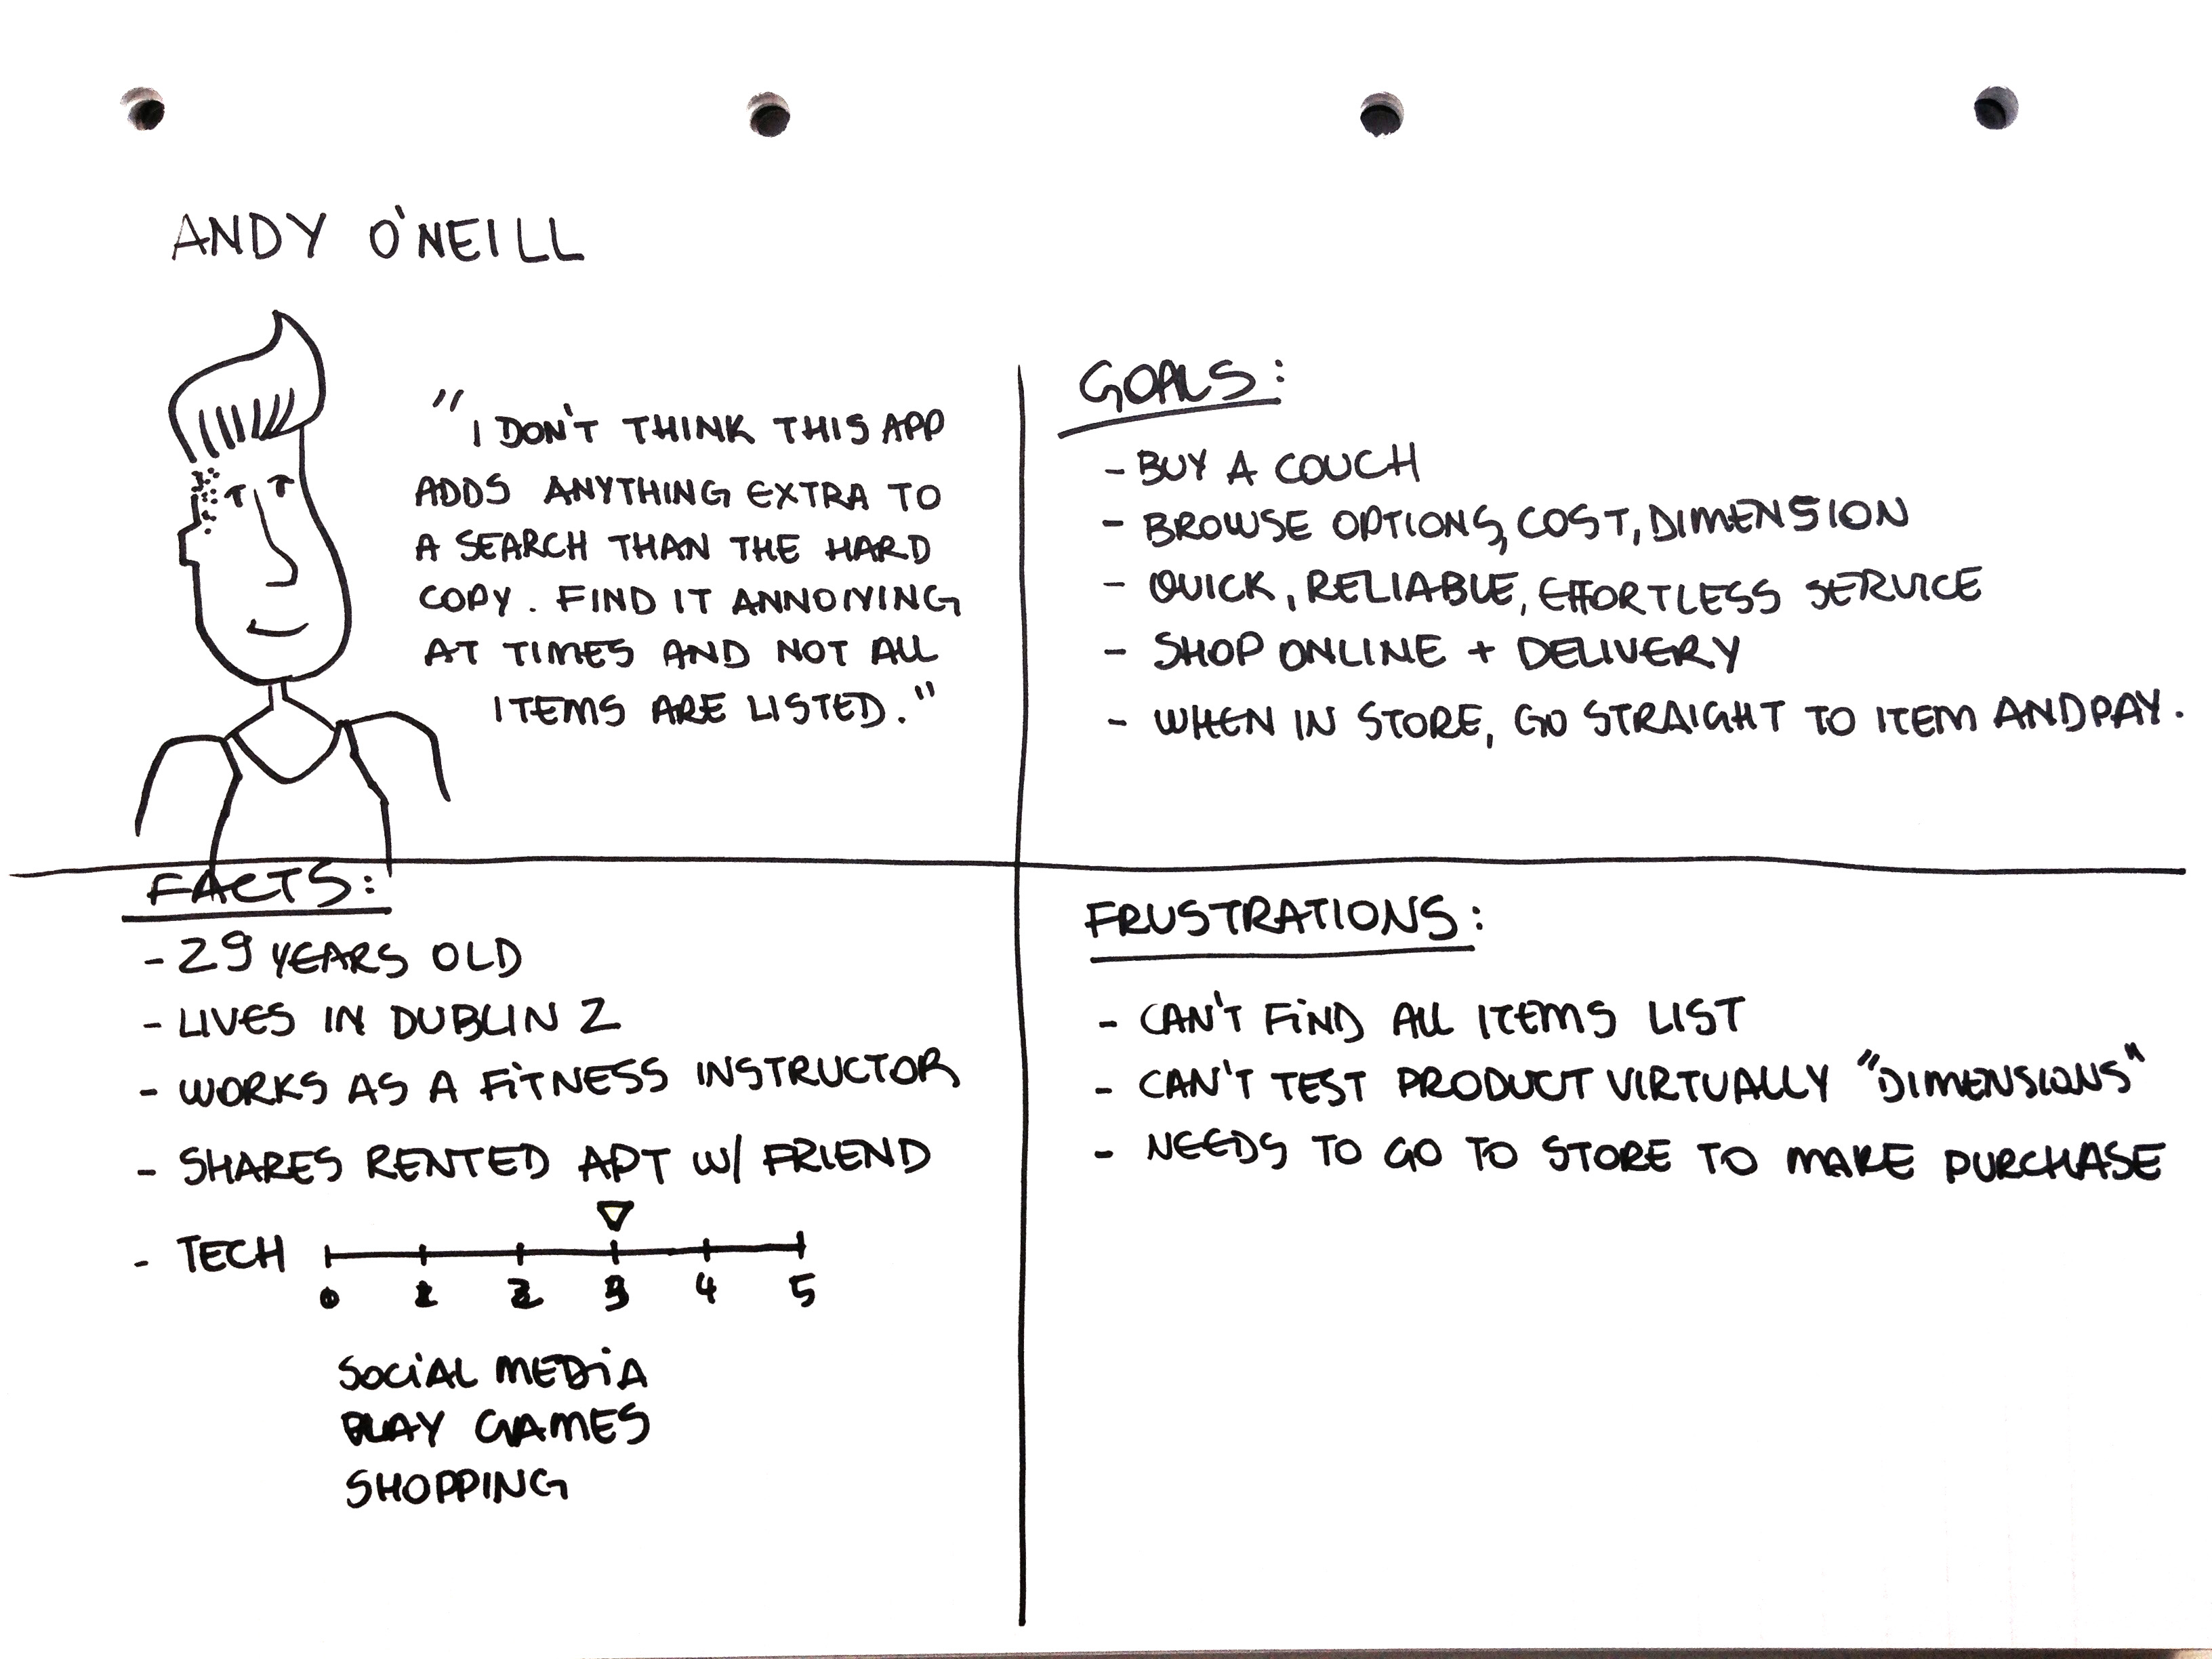 ANDY O'NEILL
"I DON'T THINK THIS APP
ADDS ANYTHING EXTRA TO
A SEARCH THAN THE HARD
COPY. FIND IT ANNOIYING
AT TIMES AND NOT ALL
ITEMS ARE LISTED."
GOALS:
- BUY A COUCH
- BROWSE OPTIONS, COST, DIMENSION
- QUICK, RELIABLE, EFFORTLESS SERVICE
- SHOP ONLINE + DELIVERY
- WHEN IN STORE, GO STRAIGHT TO ITEM AND PAY.
FACTS:
- 29 YEARS OLD
- LIVES IN DUBLIN 2
- WORKS AS A FITNESS INSTRUCTOR
- SHARES RENTED APT W/ FRIEND
- TECH
0 1 2 3 4 5
SOCIAL MEDIA
PLAY GAMES
SHOPPING
FRUSTRATIONS:
- CAN'T FIND ALL ITEMS LIST
- CAN'T TEST PRODUCT VIRTUALLY "DIMENSIONS"
- NEEDS TO GO TO STORE TO MAKE PURCHASE